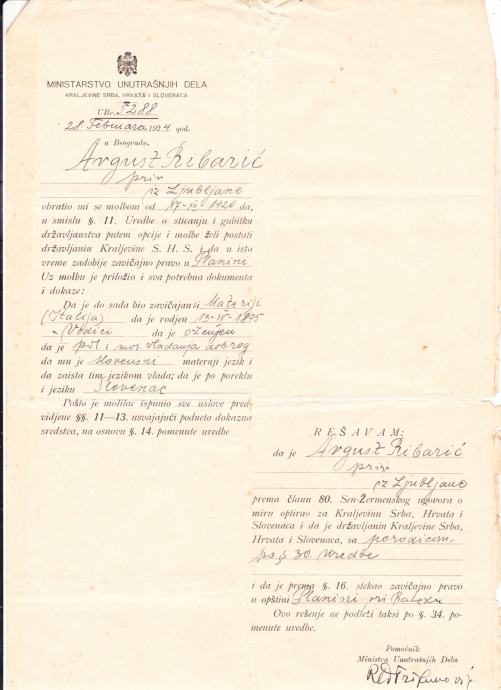 MINISTARSTVO UNUTRAŠNJIH DELA
KRALJEVINE SRBA, HRVATA I SLOVENACA
UBr. 5288
28 Februara 1924 god.
u Beogradu.
Avgust Ribarić
priv
iz Ljubljane
obratio mi se molbom od 17-XII-1920 da,
u smislu §. 11. Uredbe o sticanju i gubitku
državljanstva putem opcije i molbe želi postati
državljanin Kraljevine S. H. S. i da u isto
vreme zadobije zavičajno pravo u Planini
Uz molbu je priložio i sva potrebna dokumenta
i dokaze:
Da je do sada bio zavičajan u Materiji
(Italija) da je rodjen 13-IV-1895
Vodici da je oženjen
da je pol. i mor. vladanja dobrog
da mu je slovenski maternji jezik i
da zaista tim jezikom vlada; da je po poreklu
i jeziku Slovenac
Pošto je molilac ispunio sve uslove pred-
vidjene §§. 11—13. usvajajući podneta dokazna
sredstva, na osnovu §. 14. pomenute uredbe
REŠAVAM:
da je Avgust Ribarić
priv
iz Ljubljane
prema članu 80. Sen-Žermenskog ugovora o
miru optirao za Kraljevinu Srba, Hrvata i
Slovenaca i da je državljanin Kraljevine Srba,
Hrvata i Slovenaca, sa porodicom
po § 30. Uredbe
i da je prema §. 16. stekao zavičajno pravo
u opštini Planini pri Rakeku
Ovo rešenje ne podleži taksi po §. 34. po-
menute uredbe.
Pomoćnik
Ministra Unutrašnjih Dela